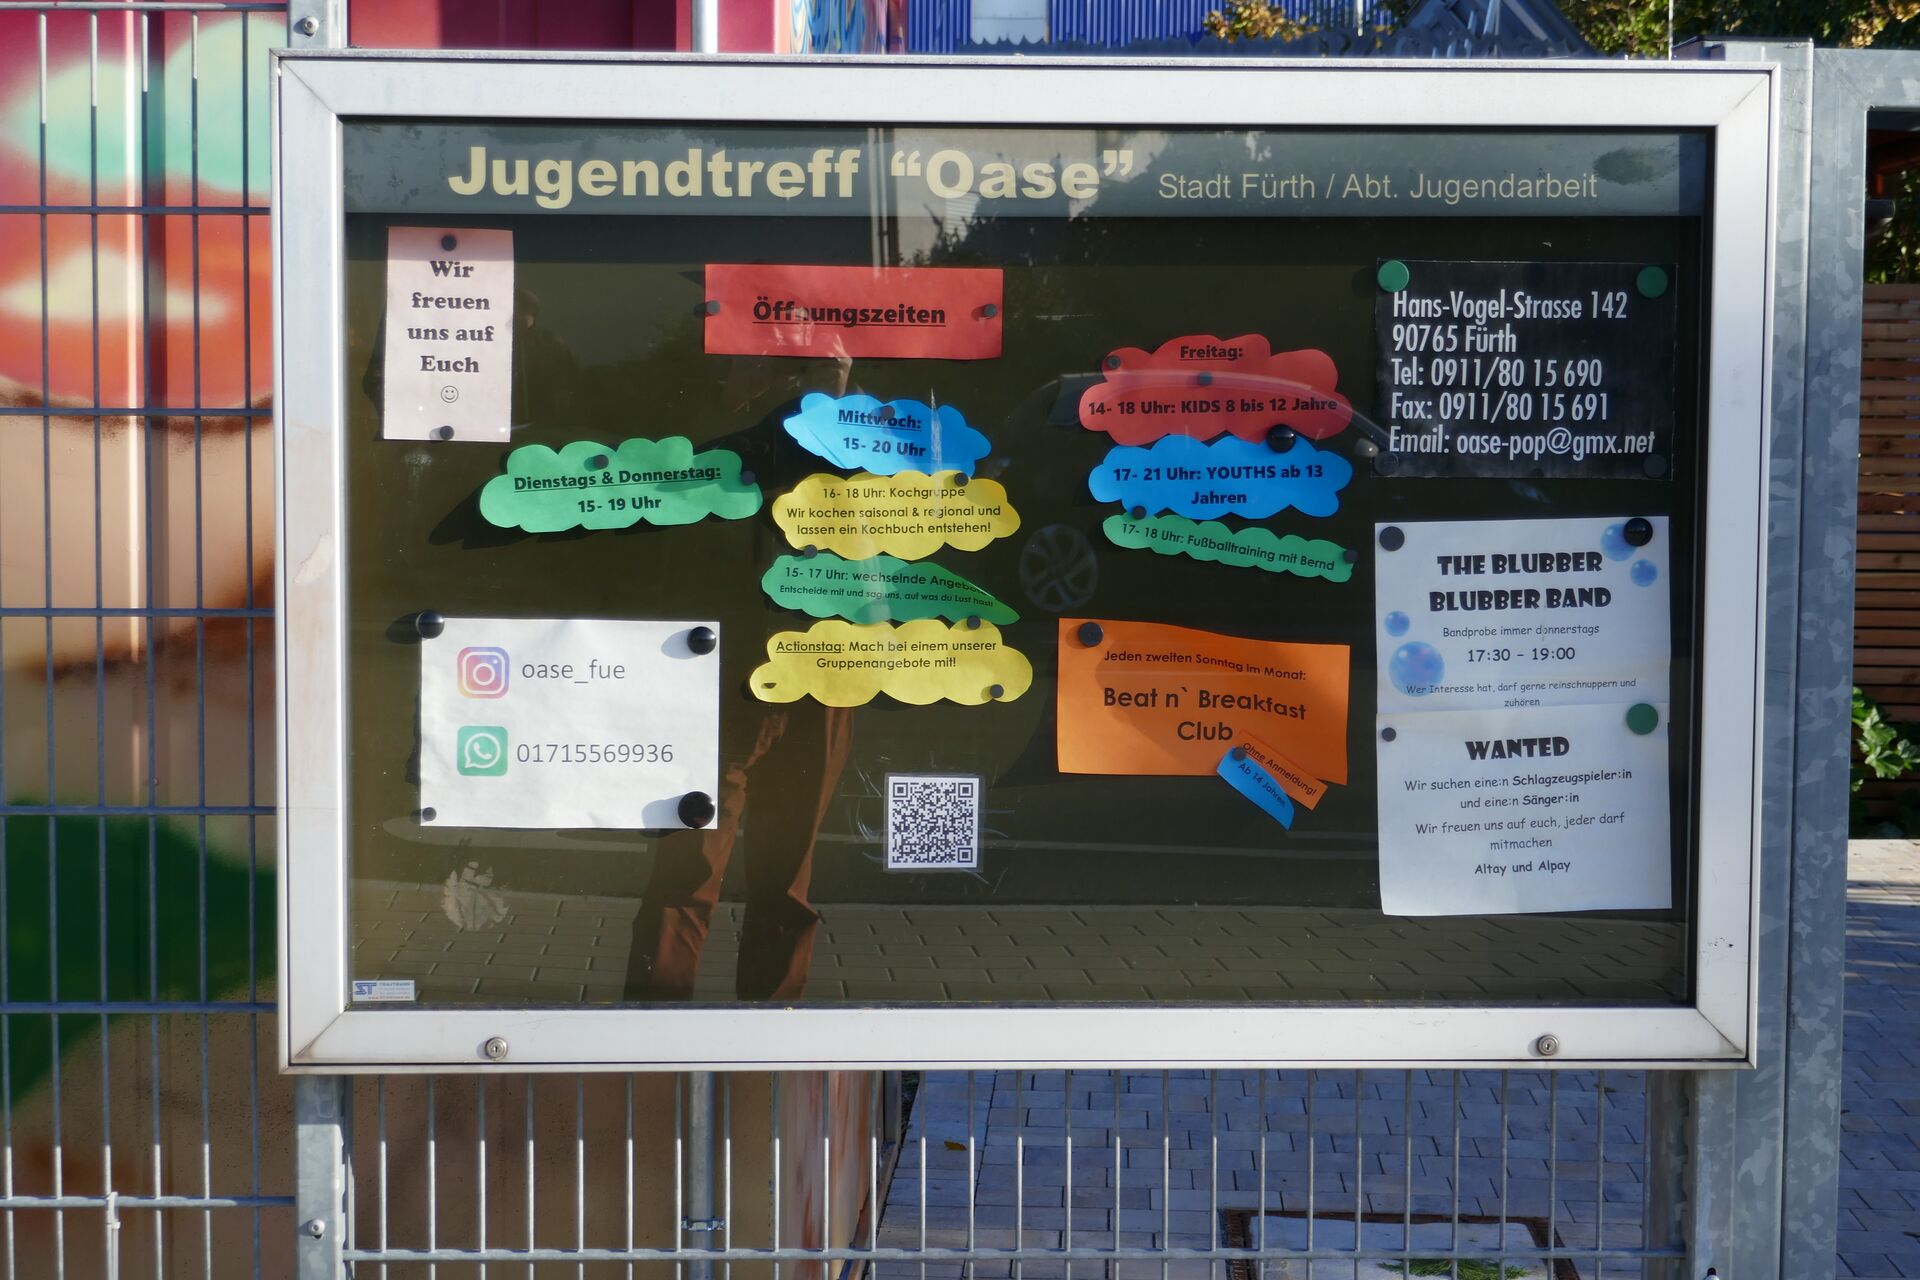 Jugendtreff “Oase” Stadt Fürth / Abt. Jugendarbeit
Wir
freuen
uns auf
Euch
Öffnungszeiten
Dienstags & Donnerstag:
15- 19 Uhr
Mittwoch:
15- 20 Uhr
16- 18 Uhr: Kochgruppe
Wir kochen saisonal & regional und
lassen ein Kochbuch entstehen!
15- 17 Uhr: wechselnde Angebote
Entscheide mit und sag uns, auf was du Lust hast!
Actionstag: Mach bei einem unserer
Gruppenangebote mit!
Freitag:
14- 18 Uhr: KIDS 8 bis 12 Jahre
17- 21 Uhr: YOUTHS ab 13
Jahren
17- 18 Uhr: Fußballtraining mit Bernd
Hans-Vogel-Strasse 142
90765 Fürth
Tel: 0911/80 15 690
Fax: 0911/80 15 691
Email: oase-pop@gmx.net
oase_fue
01715569936
Jeden zweiten Sonntag im Monat:
Beat n` Breakfast
Club
Ohne Anmeldung!
Ab 14 Jahren
THE BLUBBER
BLUBBER BAND
Bandprobe immer donnerstags
17:30 - 19:00
Wer Interesse hat, darf gerne reinschnuppern und
zuhören
WANTED
Wir suchen eine:n Schlagzeugspieler:in
und eine:n Sänger:in
Wir freuen uns auf euch, jeder darf
mitmachen
Altay und Alpay
ST